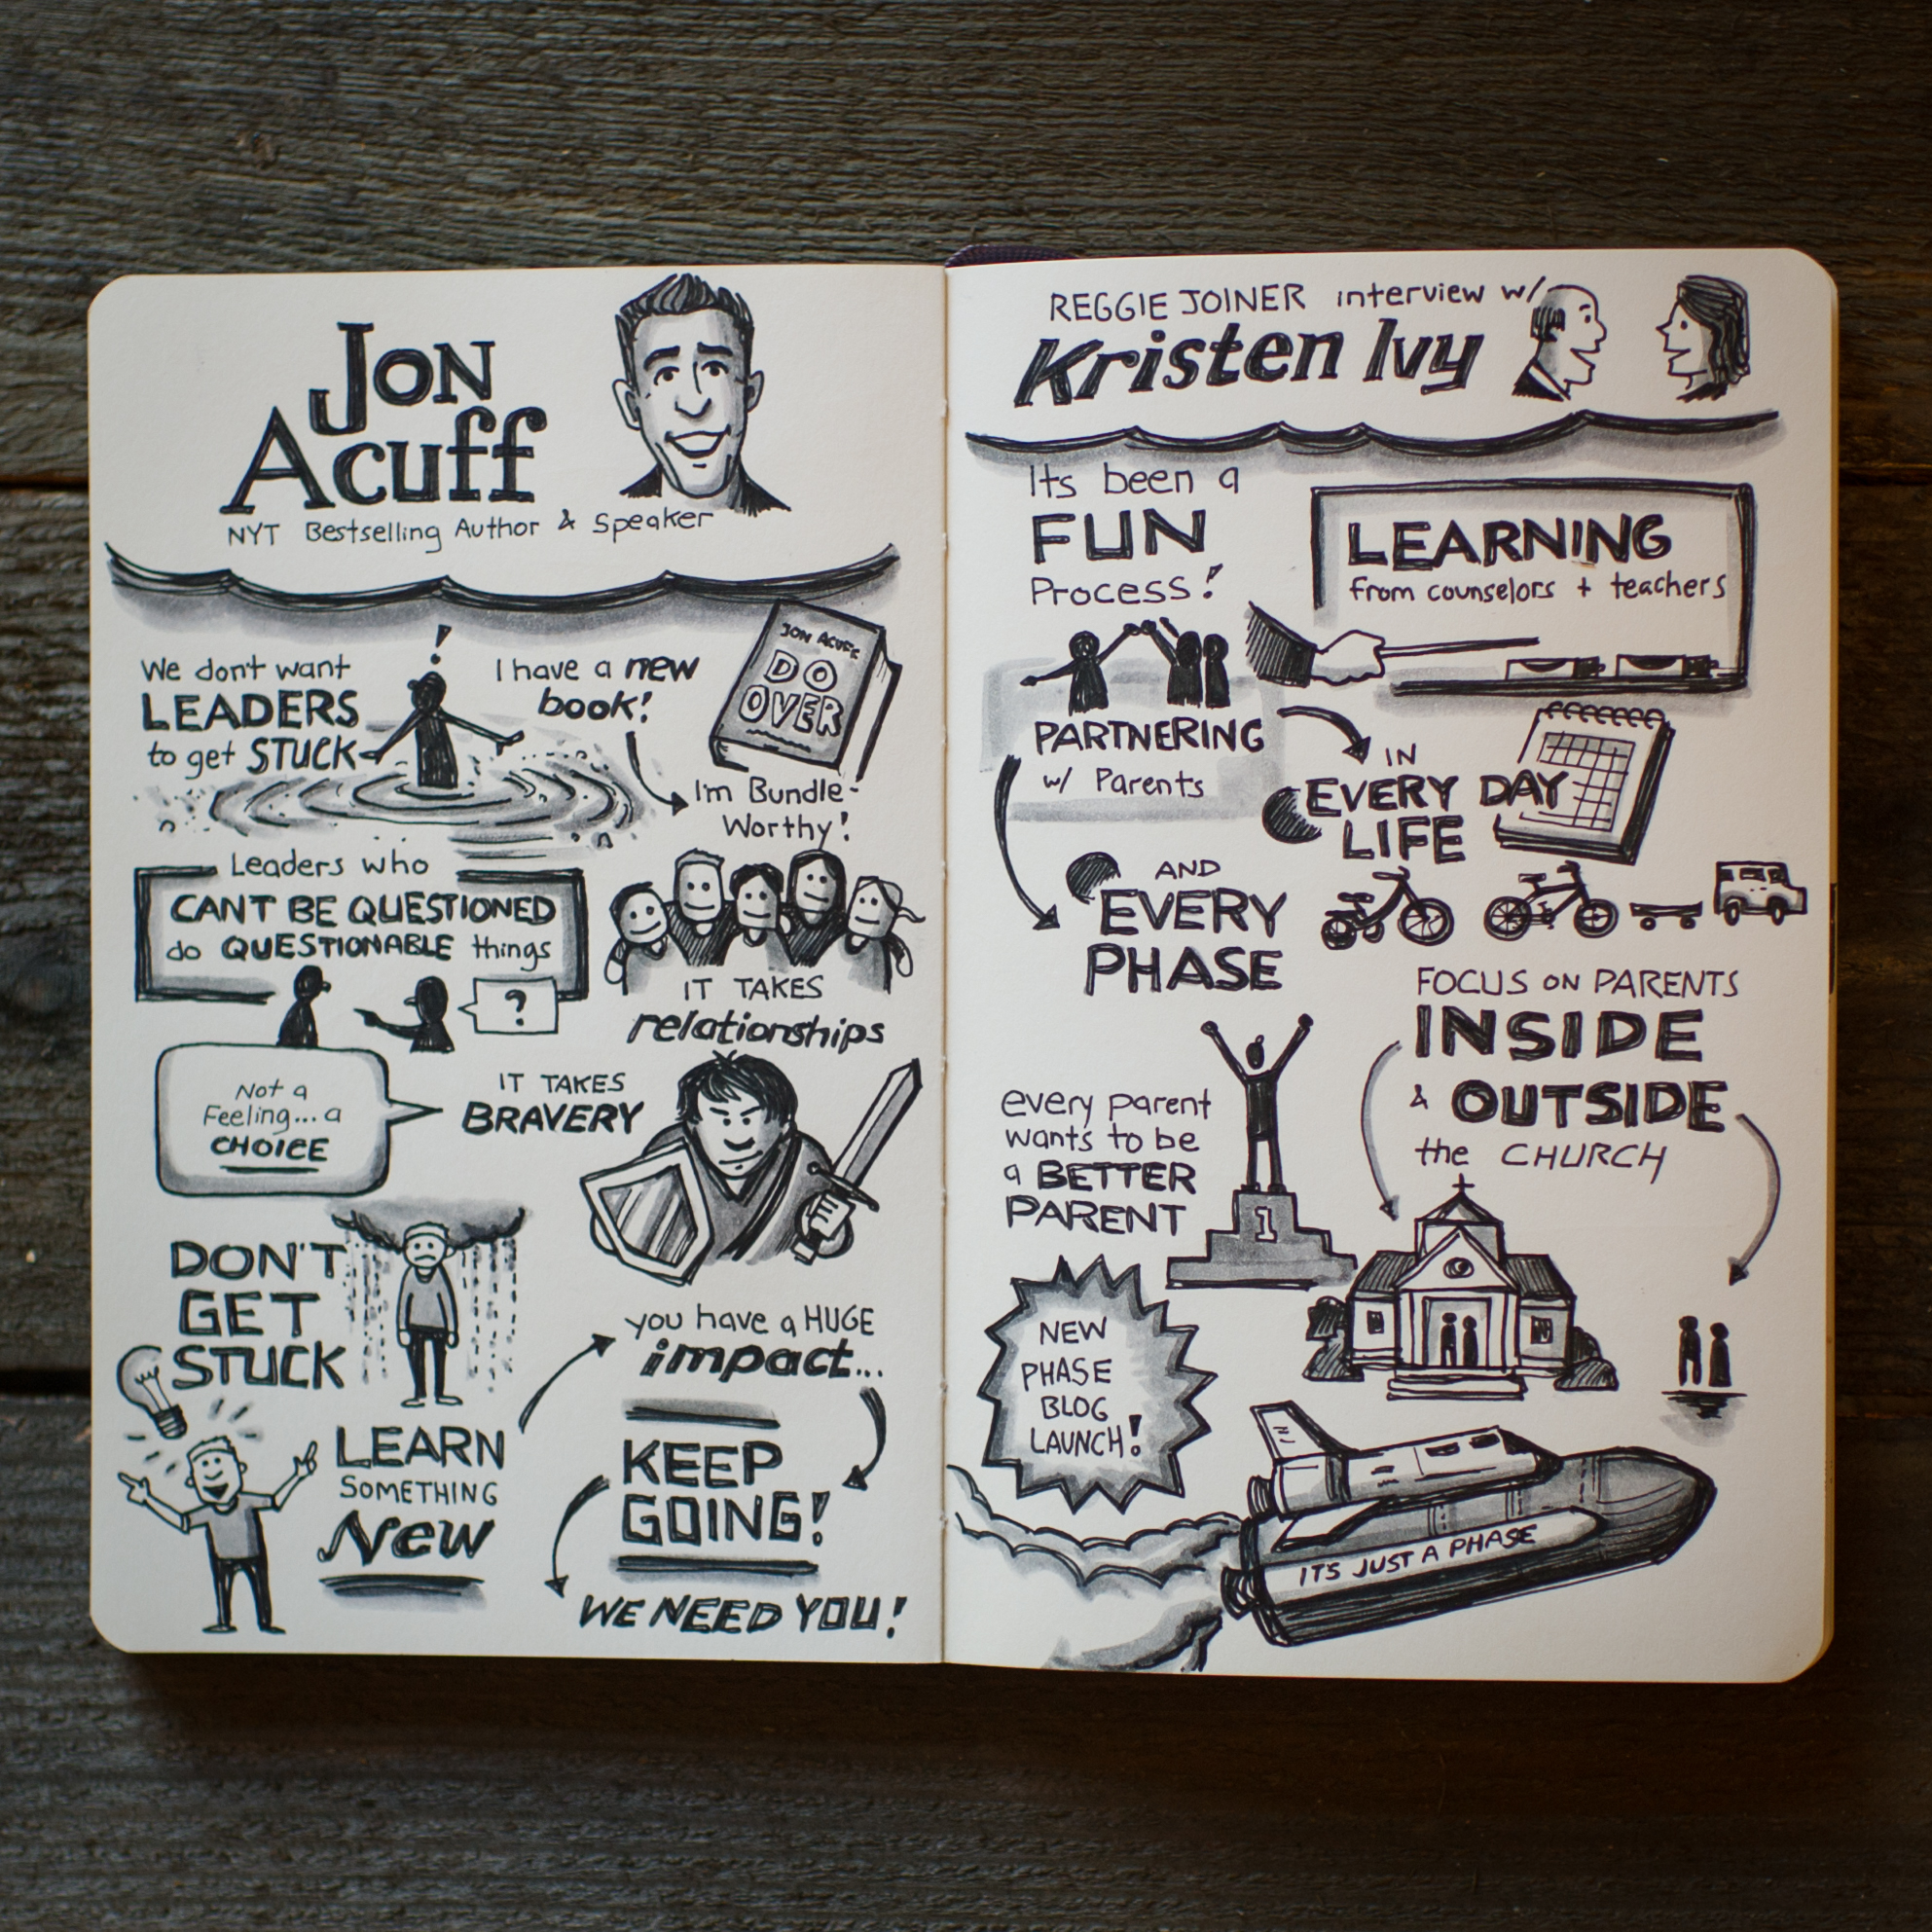 JON
Acuff
NYT Bestselling Author & Speaker
We don't want
LEADERS
to get STUCK
!
I have a new
book!
JON ACUFF
DO
OVER
I'm Bundle-
Worthy!
Leaders who
CANT BE QUESTIONED
do QUESTIONABLE things
?
IT TAKES
relationships
Not a
Feeling... a
CHOICE
IT TAKES
BRAVERY
DON'T
GET
STUCK
LEARN
SOMETHING
New
you have a HUGE
impact...
KEEP
GOING!
WE NEED YOU!
REGGIE JOINER interview w/
Kristen Ivy
Its been a
FUN
Process!
LEARNING
from counselors + teachers
PARTNERING
w/ Parents
IN
EVERY DAY
LIFE
AND
EVERY
PHASE
FOCUS ON PARENTS
INSIDE
& OUTSIDE
the CHURCH
every parent
wants to be
a BETTER
PARENT
1
NEW
PHASE
BLOG
LAUNCH!
ITS JUST A PHASE